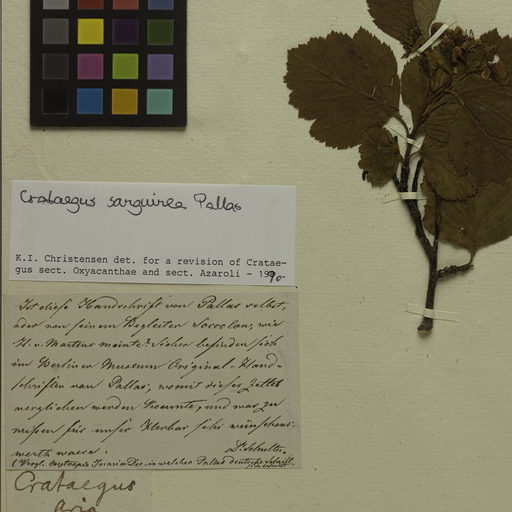 Crataegus sanguinea Pallas
K.I. Christensen det. for a revision of Cratae-
gus sect. Oxyacanthae and sect. Azaroli - 1990.
Ist diese Handschrift von Pallas selbst,
oder von seinem Begleiter Soccolow, wie
H. v. Martius meinte? Sicher befinden sich
im Berliner Museum Original-Hand-
schriften von Pallas, womit dieser Zettel
verglichen werden könnte, und was zu
wissen für unser Herbar sehr wünschens-
werth waere.
Dr. Schultes.
(Vergl. in welcher Pallas deutsche Schrift
Crataegus
Aria